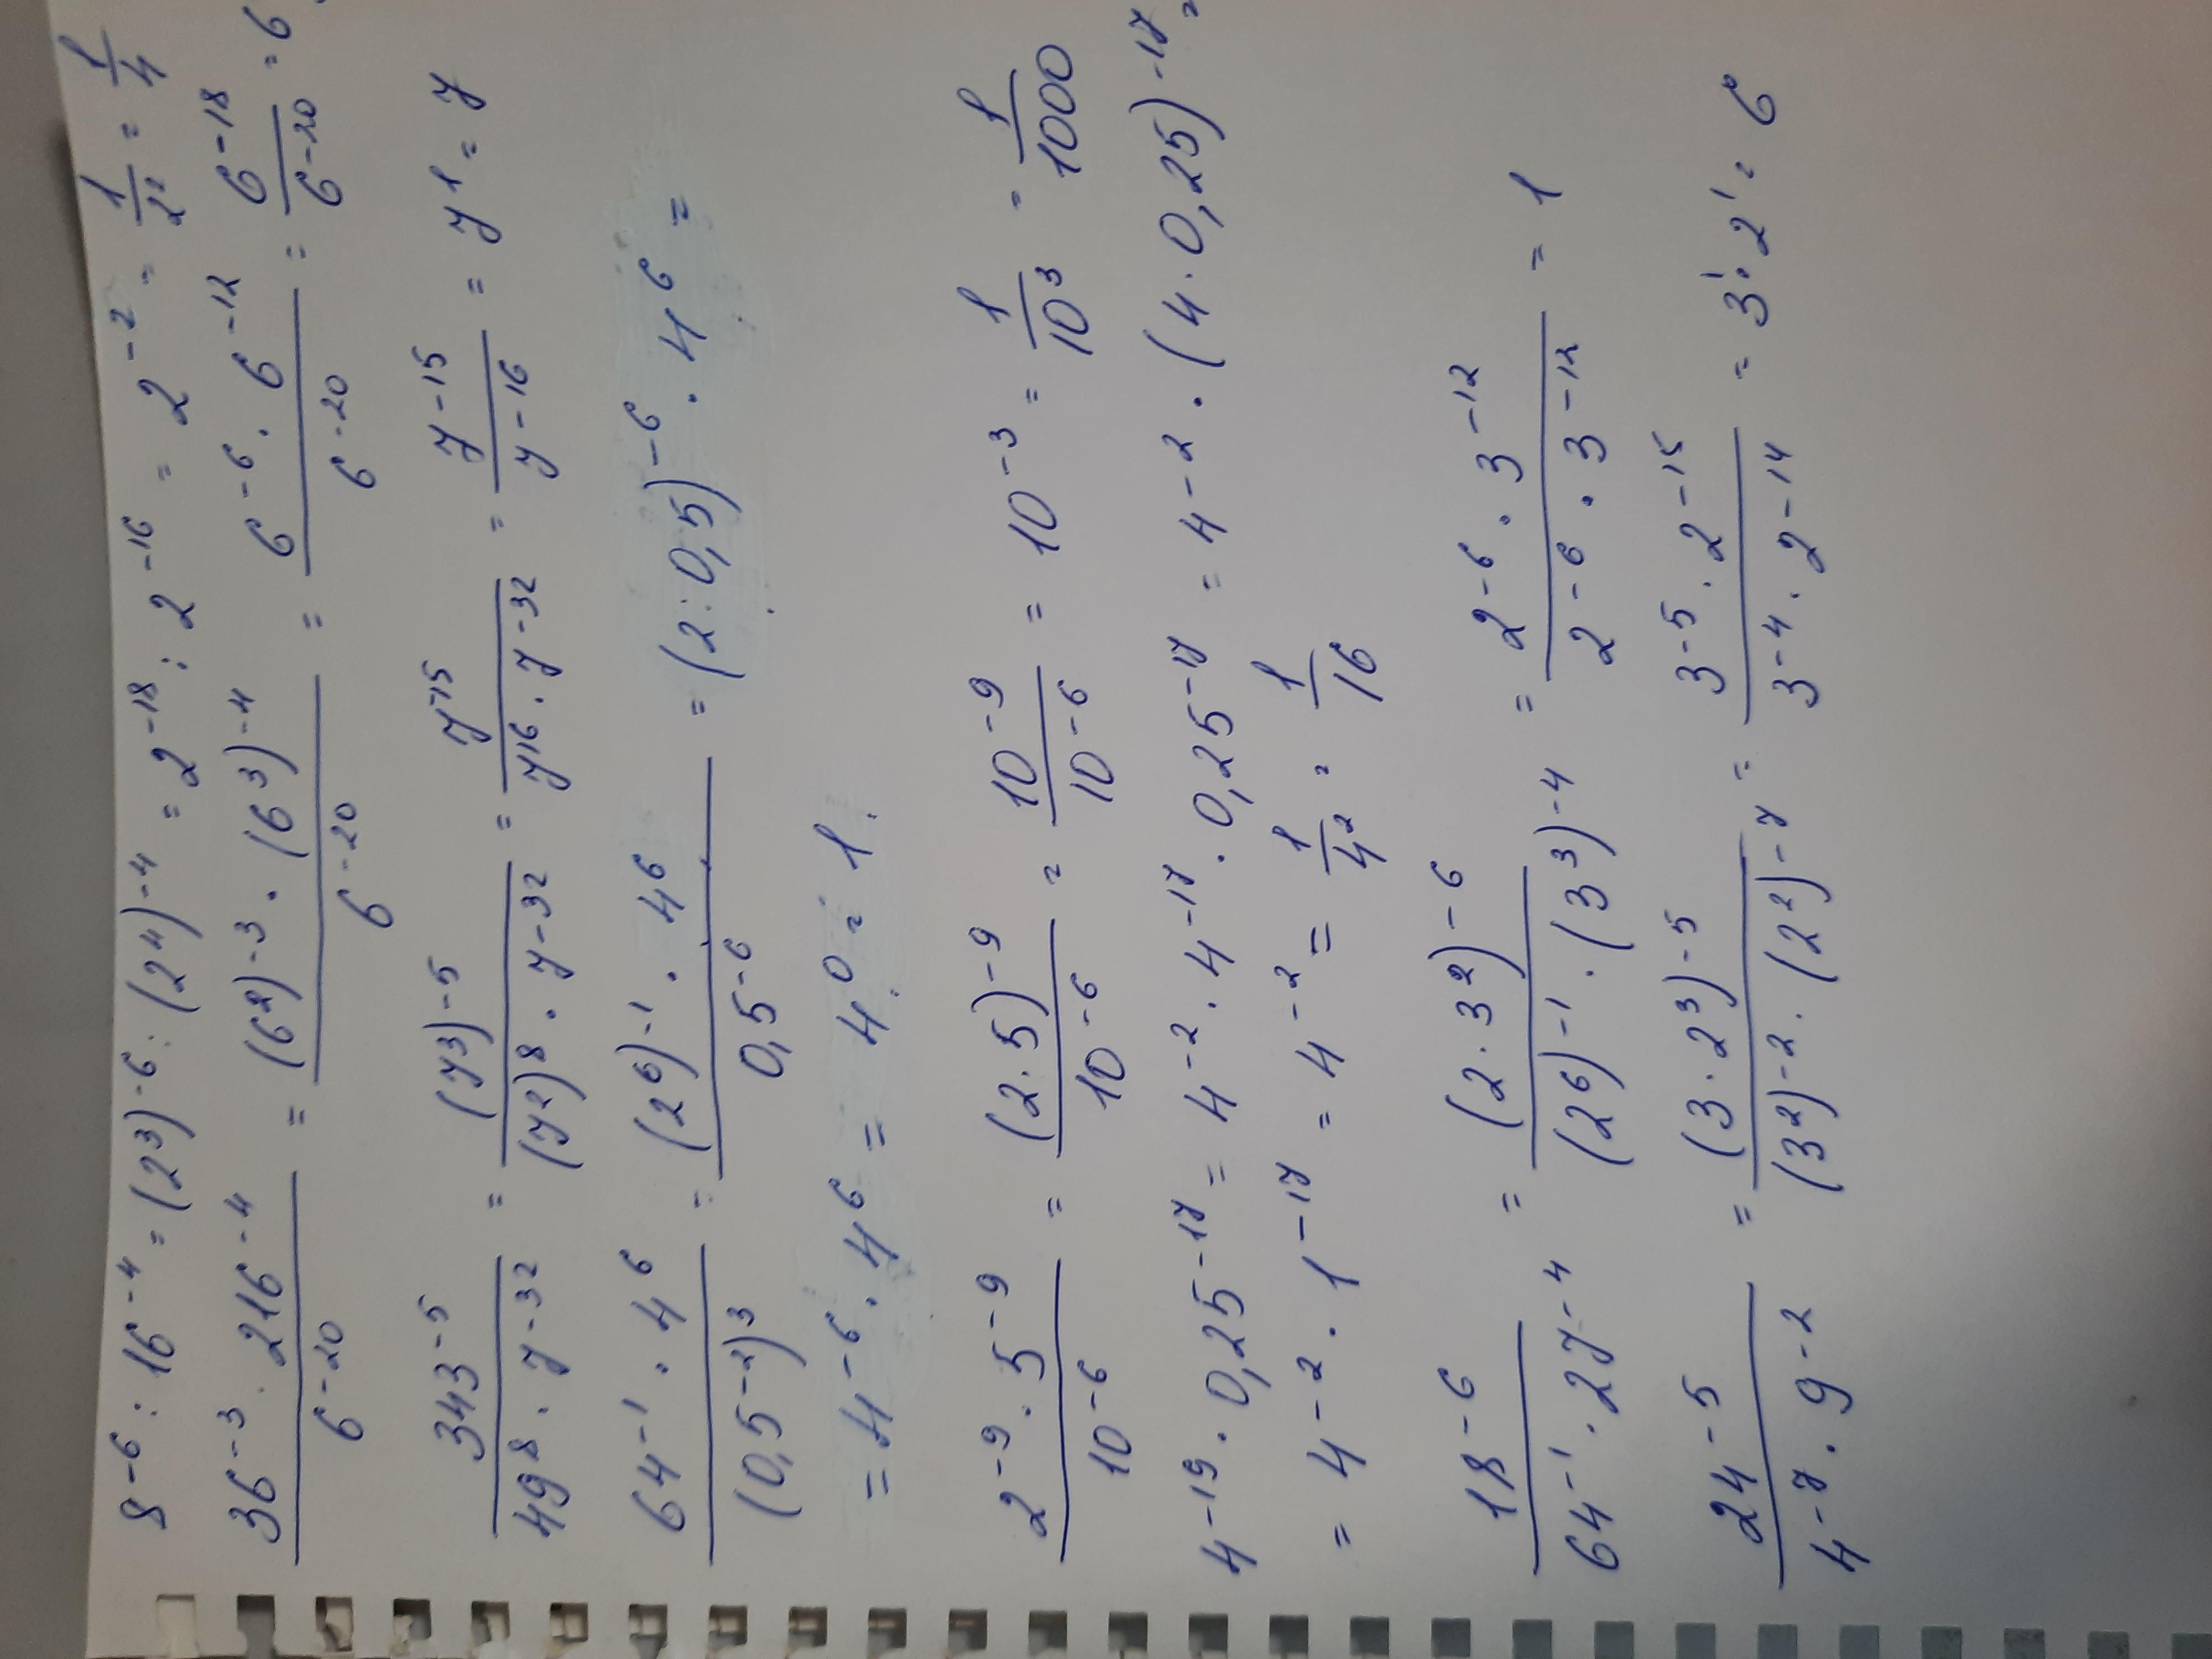 8⁻⁶ : 16⁻⁴ = (2³)⁻⁶ : (2⁴)⁻⁴ = 2⁻¹⁸ : 2⁻¹⁶ = 2⁻² = 1/2² = 1/4
(36⁻³ · 216⁻⁴)/6⁻²⁰ = ((6²)⁻³ · (6³)⁻⁴)/6⁻²⁰ = (6⁻⁶ · 6⁻¹²)/6⁻²⁰ = 6⁻¹⁸/6⁻²⁰ = 6
343⁻⁵/(49⁸ · 7⁻³²) = (7³)⁻⁵/((7²)⁸ · 7⁻³²) = 7⁻¹⁵/(7¹⁶ · 7⁻³²) = 7⁻¹⁵/7⁻¹⁶ = 7¹ = 7
(64⁻¹ · 4⁶)/(0,5⁻²)³ = ((2⁶)⁻¹ · 4⁶)/0,5⁻⁶ = (2 : 0,5)⁻⁶ · 4⁶ =
= 4⁻⁶ · 4⁶ = 4⁰ = 1.
(2⁻⁹ · 5⁻⁹)/10⁻⁶ = (2 · 5)⁻⁹/10⁻⁶ = 10⁻⁹/10⁻⁶ = 10⁻³ = 1/10³ = 1/1000
4⁻¹⁹ · 0,25⁻¹⁷ = 4⁻² · 4⁻¹⁷ · 0,25⁻¹⁷ = 4⁻² · (4 · 0,25)⁻¹⁷ =
= 4⁻² · 1⁻¹⁷ = 4⁻² = 1/4² = 1/16
18⁻⁶/(64⁻¹ · 27⁻⁴) = (2 · 3²)⁻⁶/((2⁶)⁻¹ · (3³)⁻⁴) = (2⁻⁶ · 3⁻¹²)/(2⁻⁶ · 3⁻¹²) = 1
24⁻⁵/(4⁻⁷ · 9⁻²) = (3 · 2³)⁻⁵/((3²)⁻² · (2²)⁻⁷) = (3⁻⁵ · 2⁻¹⁵)/(3⁻⁴ · 2⁻¹⁴) = 3¹ · 2¹ = 6